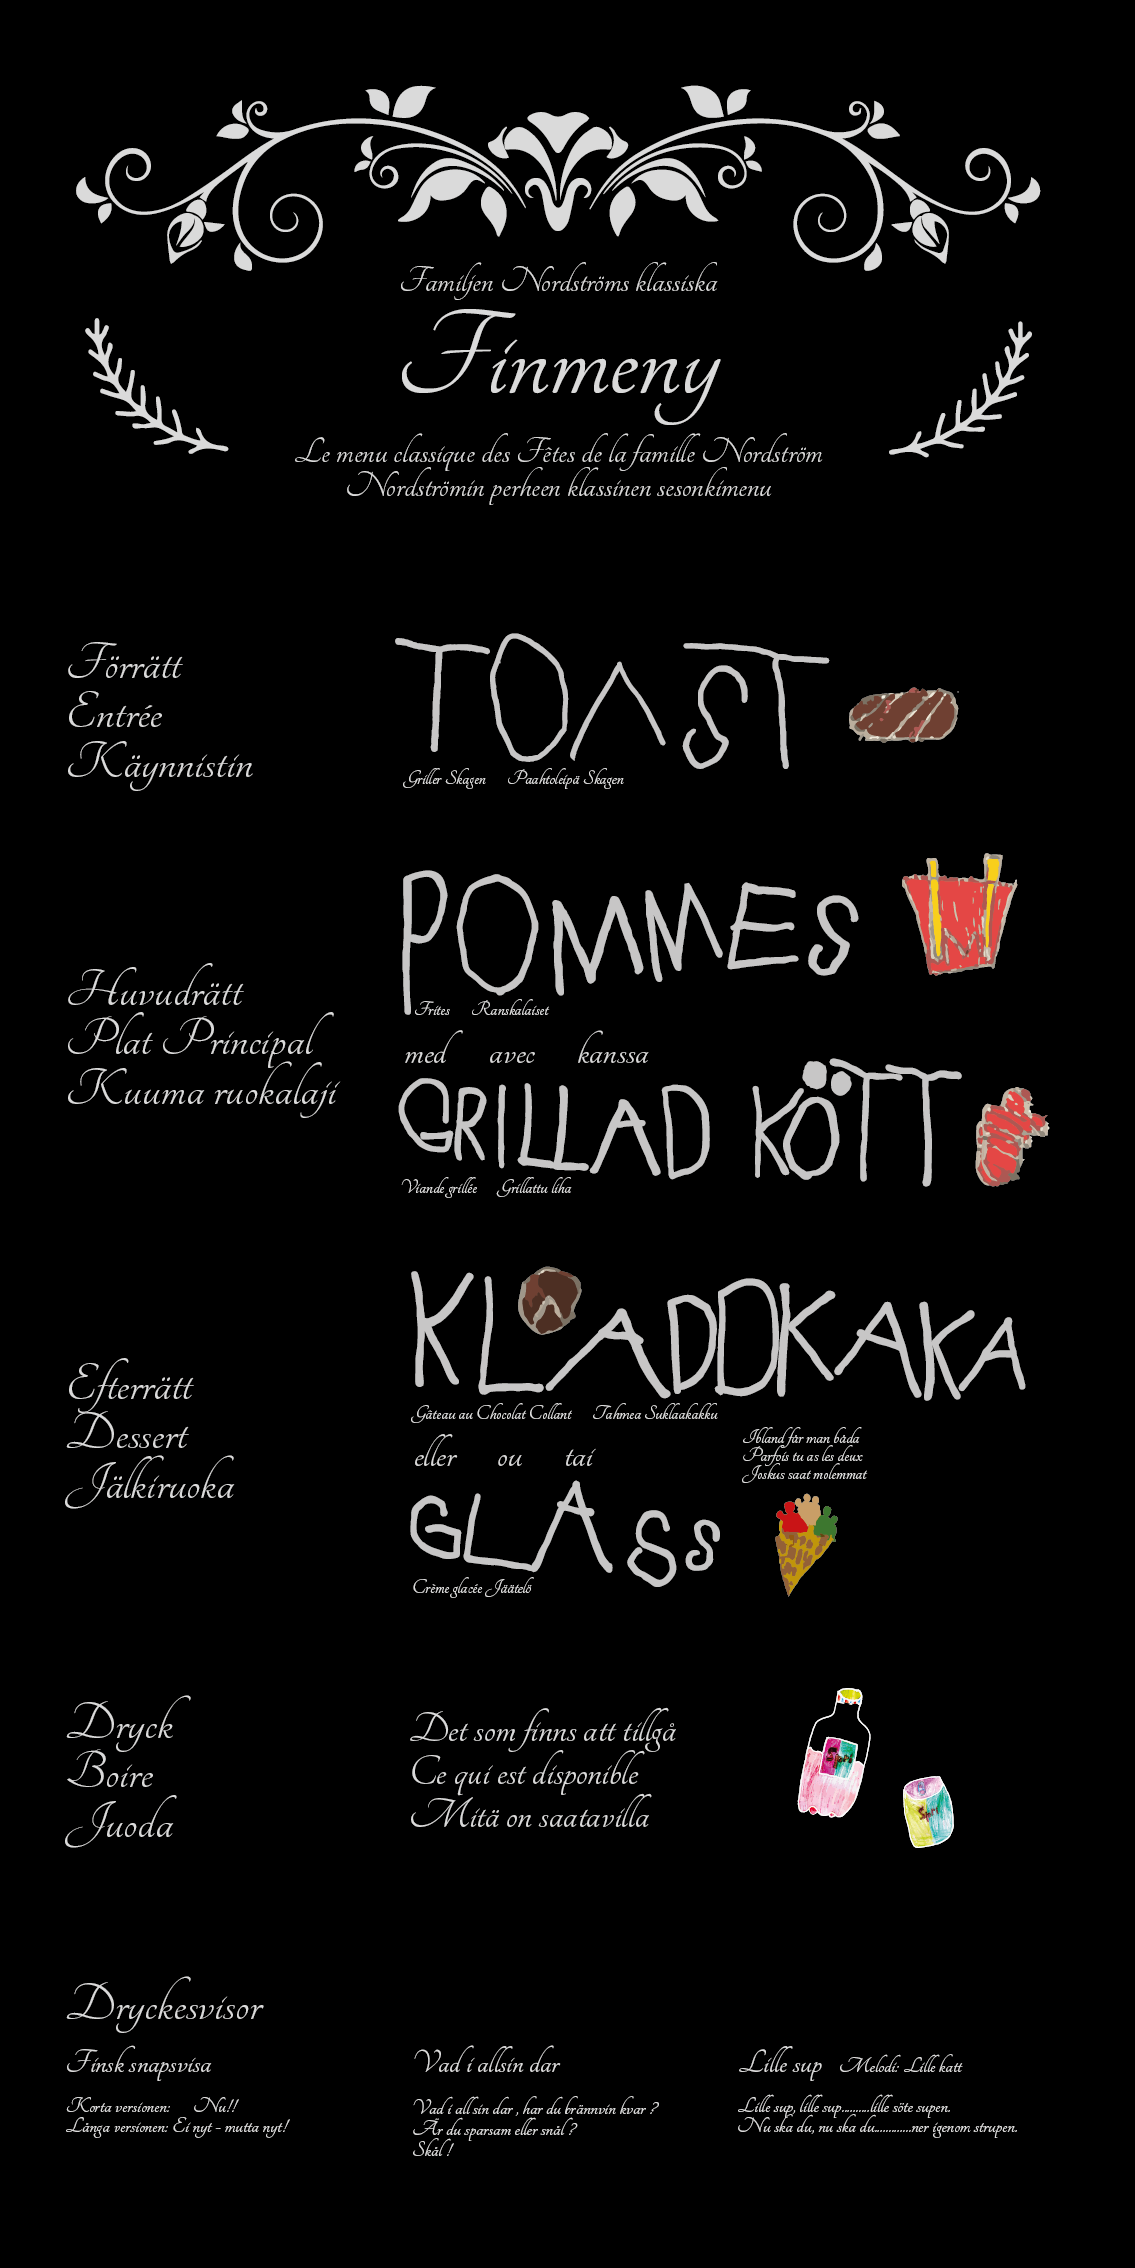 Familjen Nordströms klassiska
Finmeny
Le menu classique des Fêtes de la famille Nordström
Nordströmin perheen klassinen sesonkimenu
Förrätt
Entrée
Käynnistin
TOAST
Griller Skagen Paahtoleipä Skagen
Huvudrätt
Plat Principal
Kuuma ruokalaji
POMMES
Frites Ranskalaiset
med avec kanssa
GRILLAD KÖTT
Viande grillée Grillattu liha
Efterrätt
Dessert
Jälkiruoka
KLADDKAKA
Gâteau au Chocolat Collant Tahmea Suklaakakku
eller ou tai
Ibland får man båda
Parfois tu as les deux
Joskus saat molemmat
GLASS
Crème glacée Jäätelö
Dryck
Boire
Juoda
Det som finns att tillgå
Ce qui est disponible
Mitä on saatavilla
Dryckesvisor
Finsk snapsvisa
Korta versionen: Nu!!
Långa versionen: Ei nyt - mutta nyt!
Vad i allsin dar
Vad i all sin dar , har du brännvin kvar ?
Är du sparsam eller snål ?
Skål !
Lille sup Melodi: Lille katt
Lille sup, lille sup..........lille söte supen.
Nu ska du, nu ska du.............ner igenom strupen.